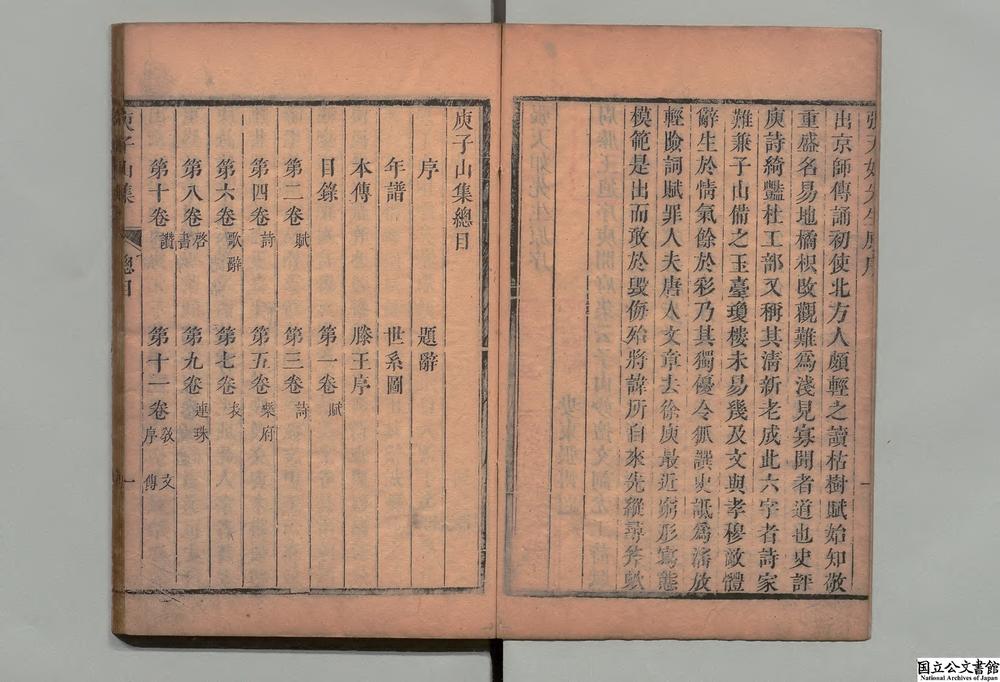 出京師傳誦初使北方人頗輕之讀枯樹賦始知敬
重盛名易地橘枳改觀難爲淺見寡聞者道也史評
庾詩綺豔杜工部又稱其淸新老成此六字者詩家
難兼子山備之玉臺瓊樓未易幾及文與孝穆敵體
辭生於情氣餘於彩乃其獨優令狐譔史詆爲淫放
輕險詞賦罪人夫唐人文章去徐庾最近窮形寫態
模範是出而敢於毀侮殆將諱所自來先縱尋斧歟
庾子山集總目
序 題辭
年譜 世系圖
本傳 滕王序
目錄 第一卷 賦
第二卷 賦 第三卷 詩
第四卷 詩 第五卷 樂府
第六卷 歌辭 第七卷 表
第八卷 啓 書 第九卷 連珠
第十卷 讚 第十一卷 教 文 序 傳
庾子山集 總目 一
国立公文書館
National Archives of Japan